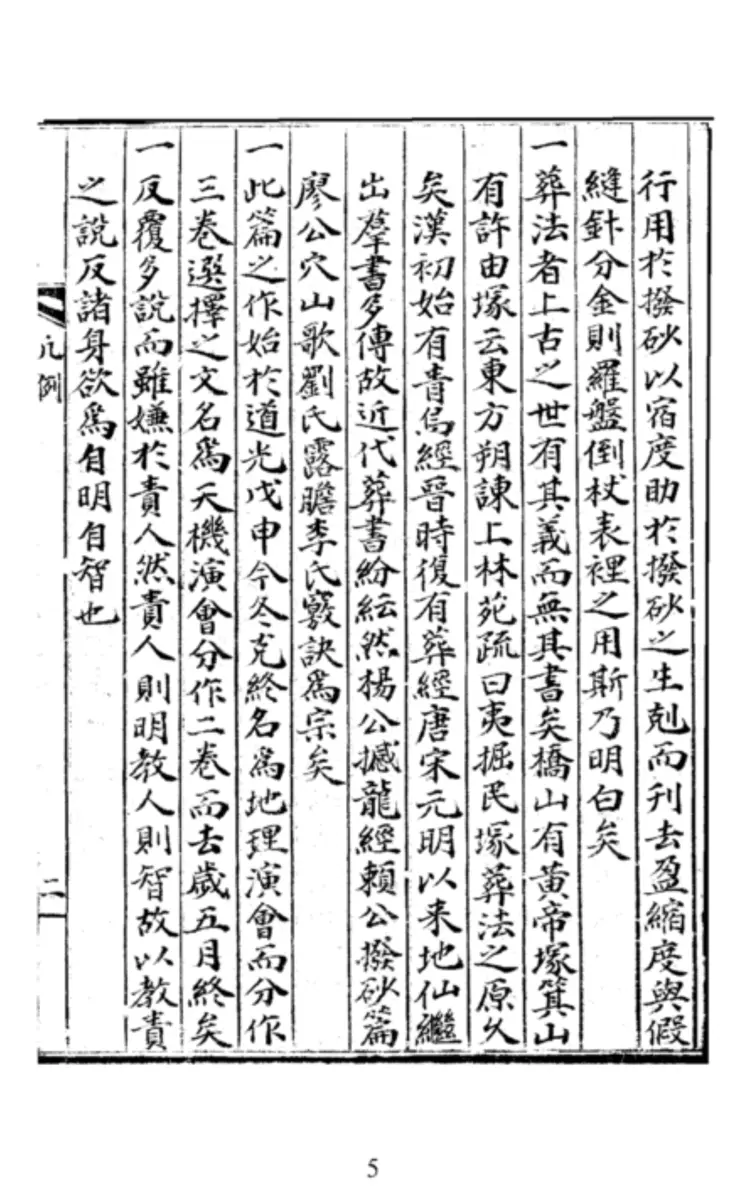 行用於撥砂以宿度助於撥砂之生剋而刊去盈縮度與假
縫針分金則羅盤倒杖表裡之用斯乃明白矣
一葬法者上古之世有其義而無其書矣橋山有黃帝塚箕山
有許由塚云東方朔諫上林苑疏曰夷掘民塚葬法之原久
矣漢初始有青烏經晉時復有葬經唐宋元明以來地仙繼
出羣書多傳故近代葬書紛紜然楊公撼龍經賴公撥砂篇
廖公穴山歌劉氏露膽李氏竅訣爲宗矣
一此篇之作始於道光戊申今冬克終名爲地理演會而分作
三卷選擇之文名爲天機演會分作二卷而去歲五月終矣
一反覆多說而雖嫌於責人然責人則明教人則智故以教責
之說反諸身欲爲自明自智也
凡例
二
5